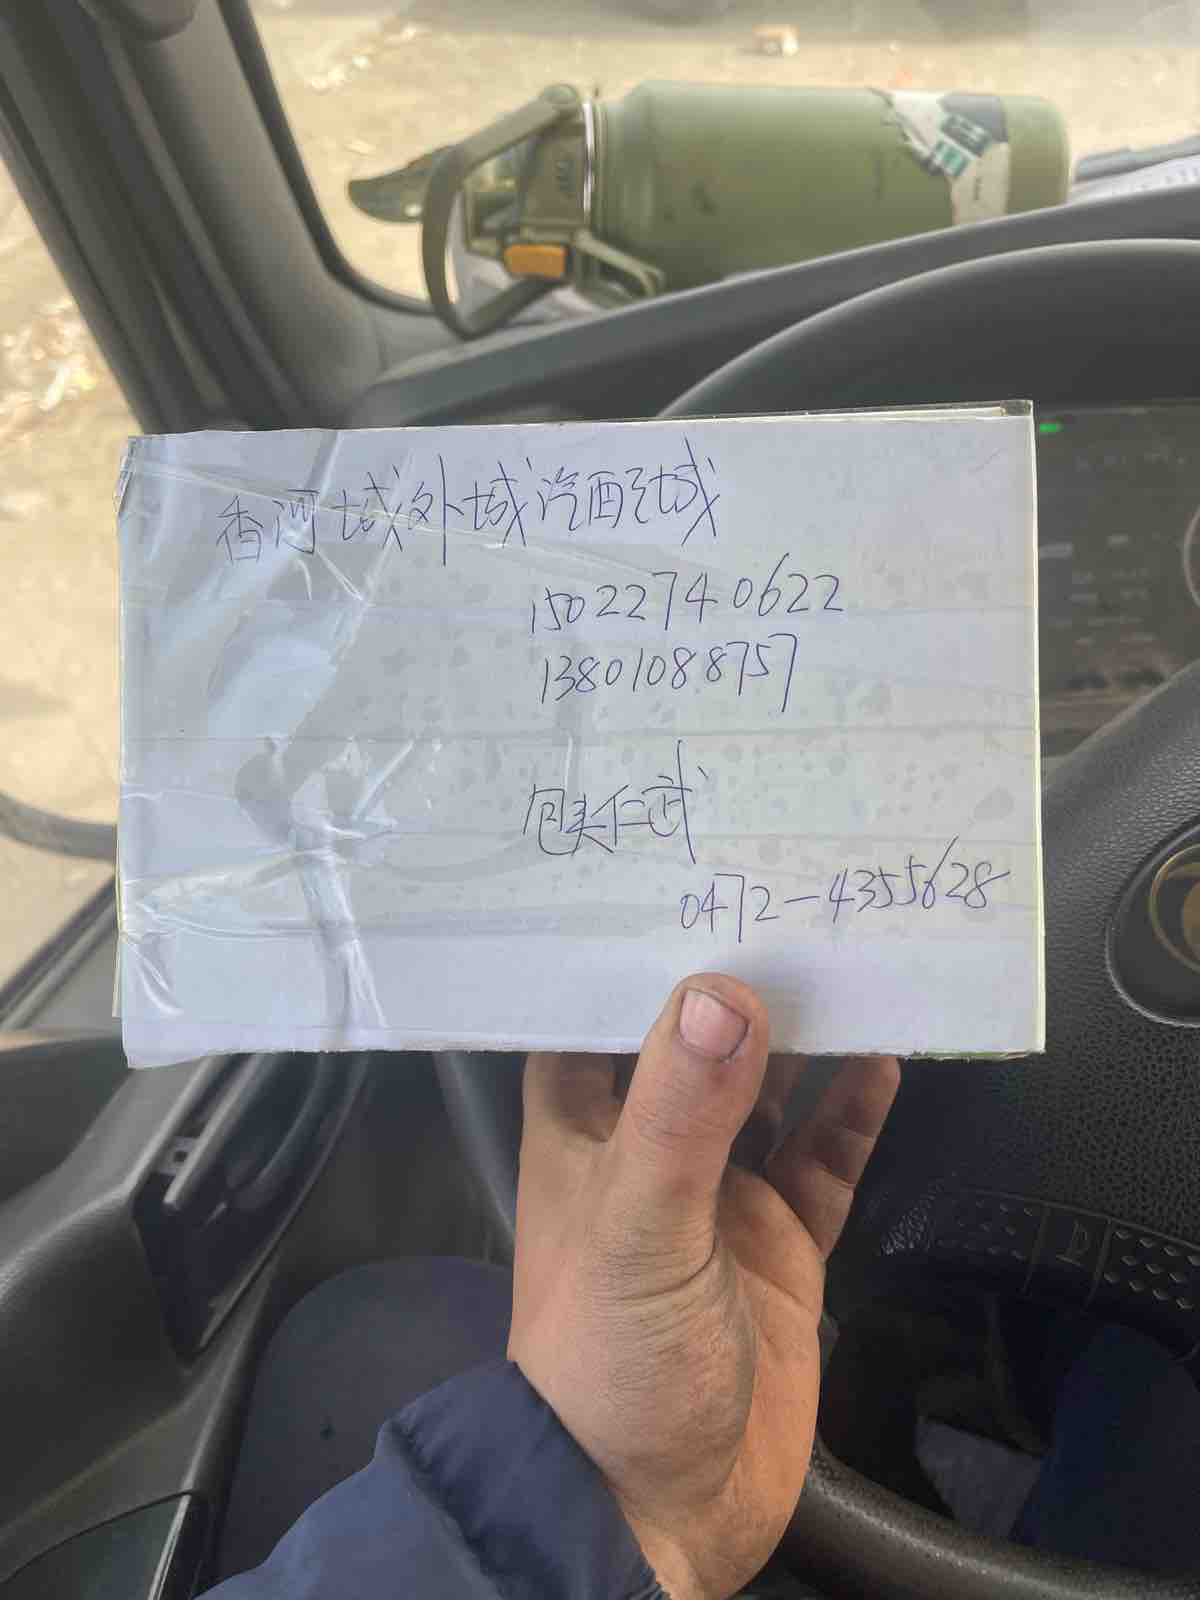 香河域外域汽配城
15022740622
13801088757
包头仁武
0472-4355628